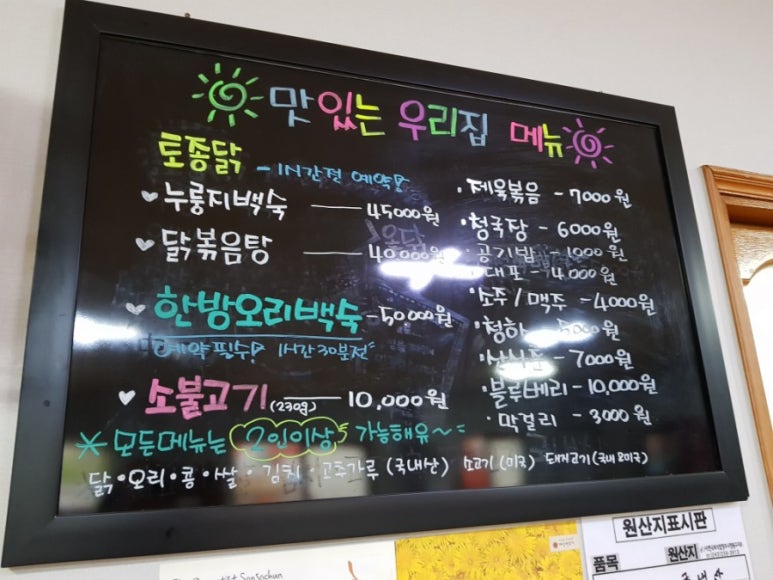 맛있는 우리집 메뉴
토종닭 - 1시간전 예약!
누룽지백숙 — 45000원
닭볶음탕 — 40000원
한방오리백숙 - 50000원
예약필수! 1시간 30분전
소불고기(230g) — 10,000원
* 모든메뉴는 2인이상 가능해유~
· 제육볶음 - 7000원
· 청국장 - 6000원
· 공기밥 - 1000원
대포 - 4,000원
· 소주/맥주 - 4000원
· 청하 - 5000원
- 7000원
· 블루베리 - 10,000원
· 막걸리 - 3000원
닭·오리·콩·쌀·김치·고추가루 (국내산) 소고기(미국) 돼지고기(국내&미국)
원산지표시판
품목 원산지